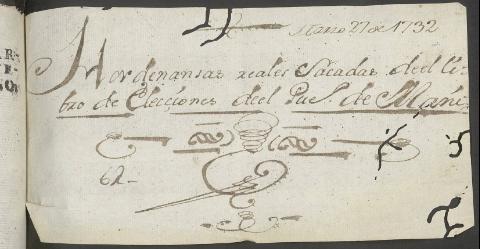 Marzo 27 de 1732
Hordenansas reales Sacadas deel li-
bro de Elecciones deel Pue.º de Mani
62-